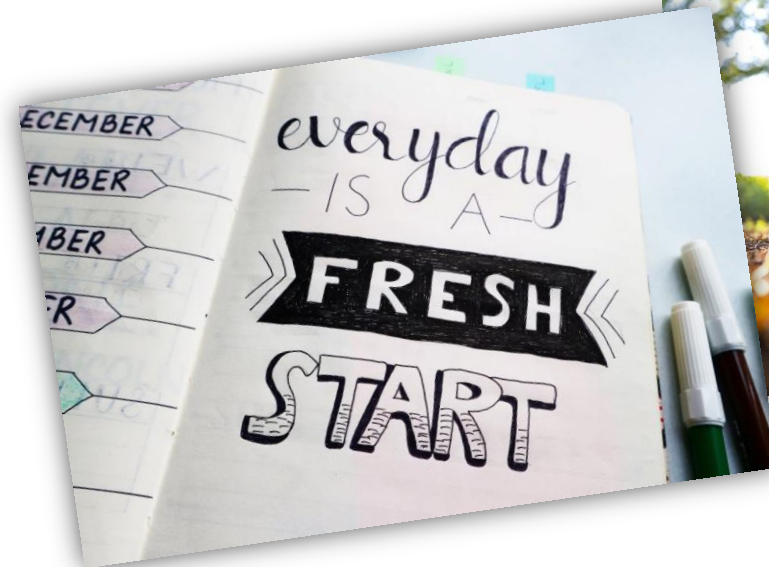 ECEMBER
EMBER
BER
ER
everyday
— IS A —
FRESH
START